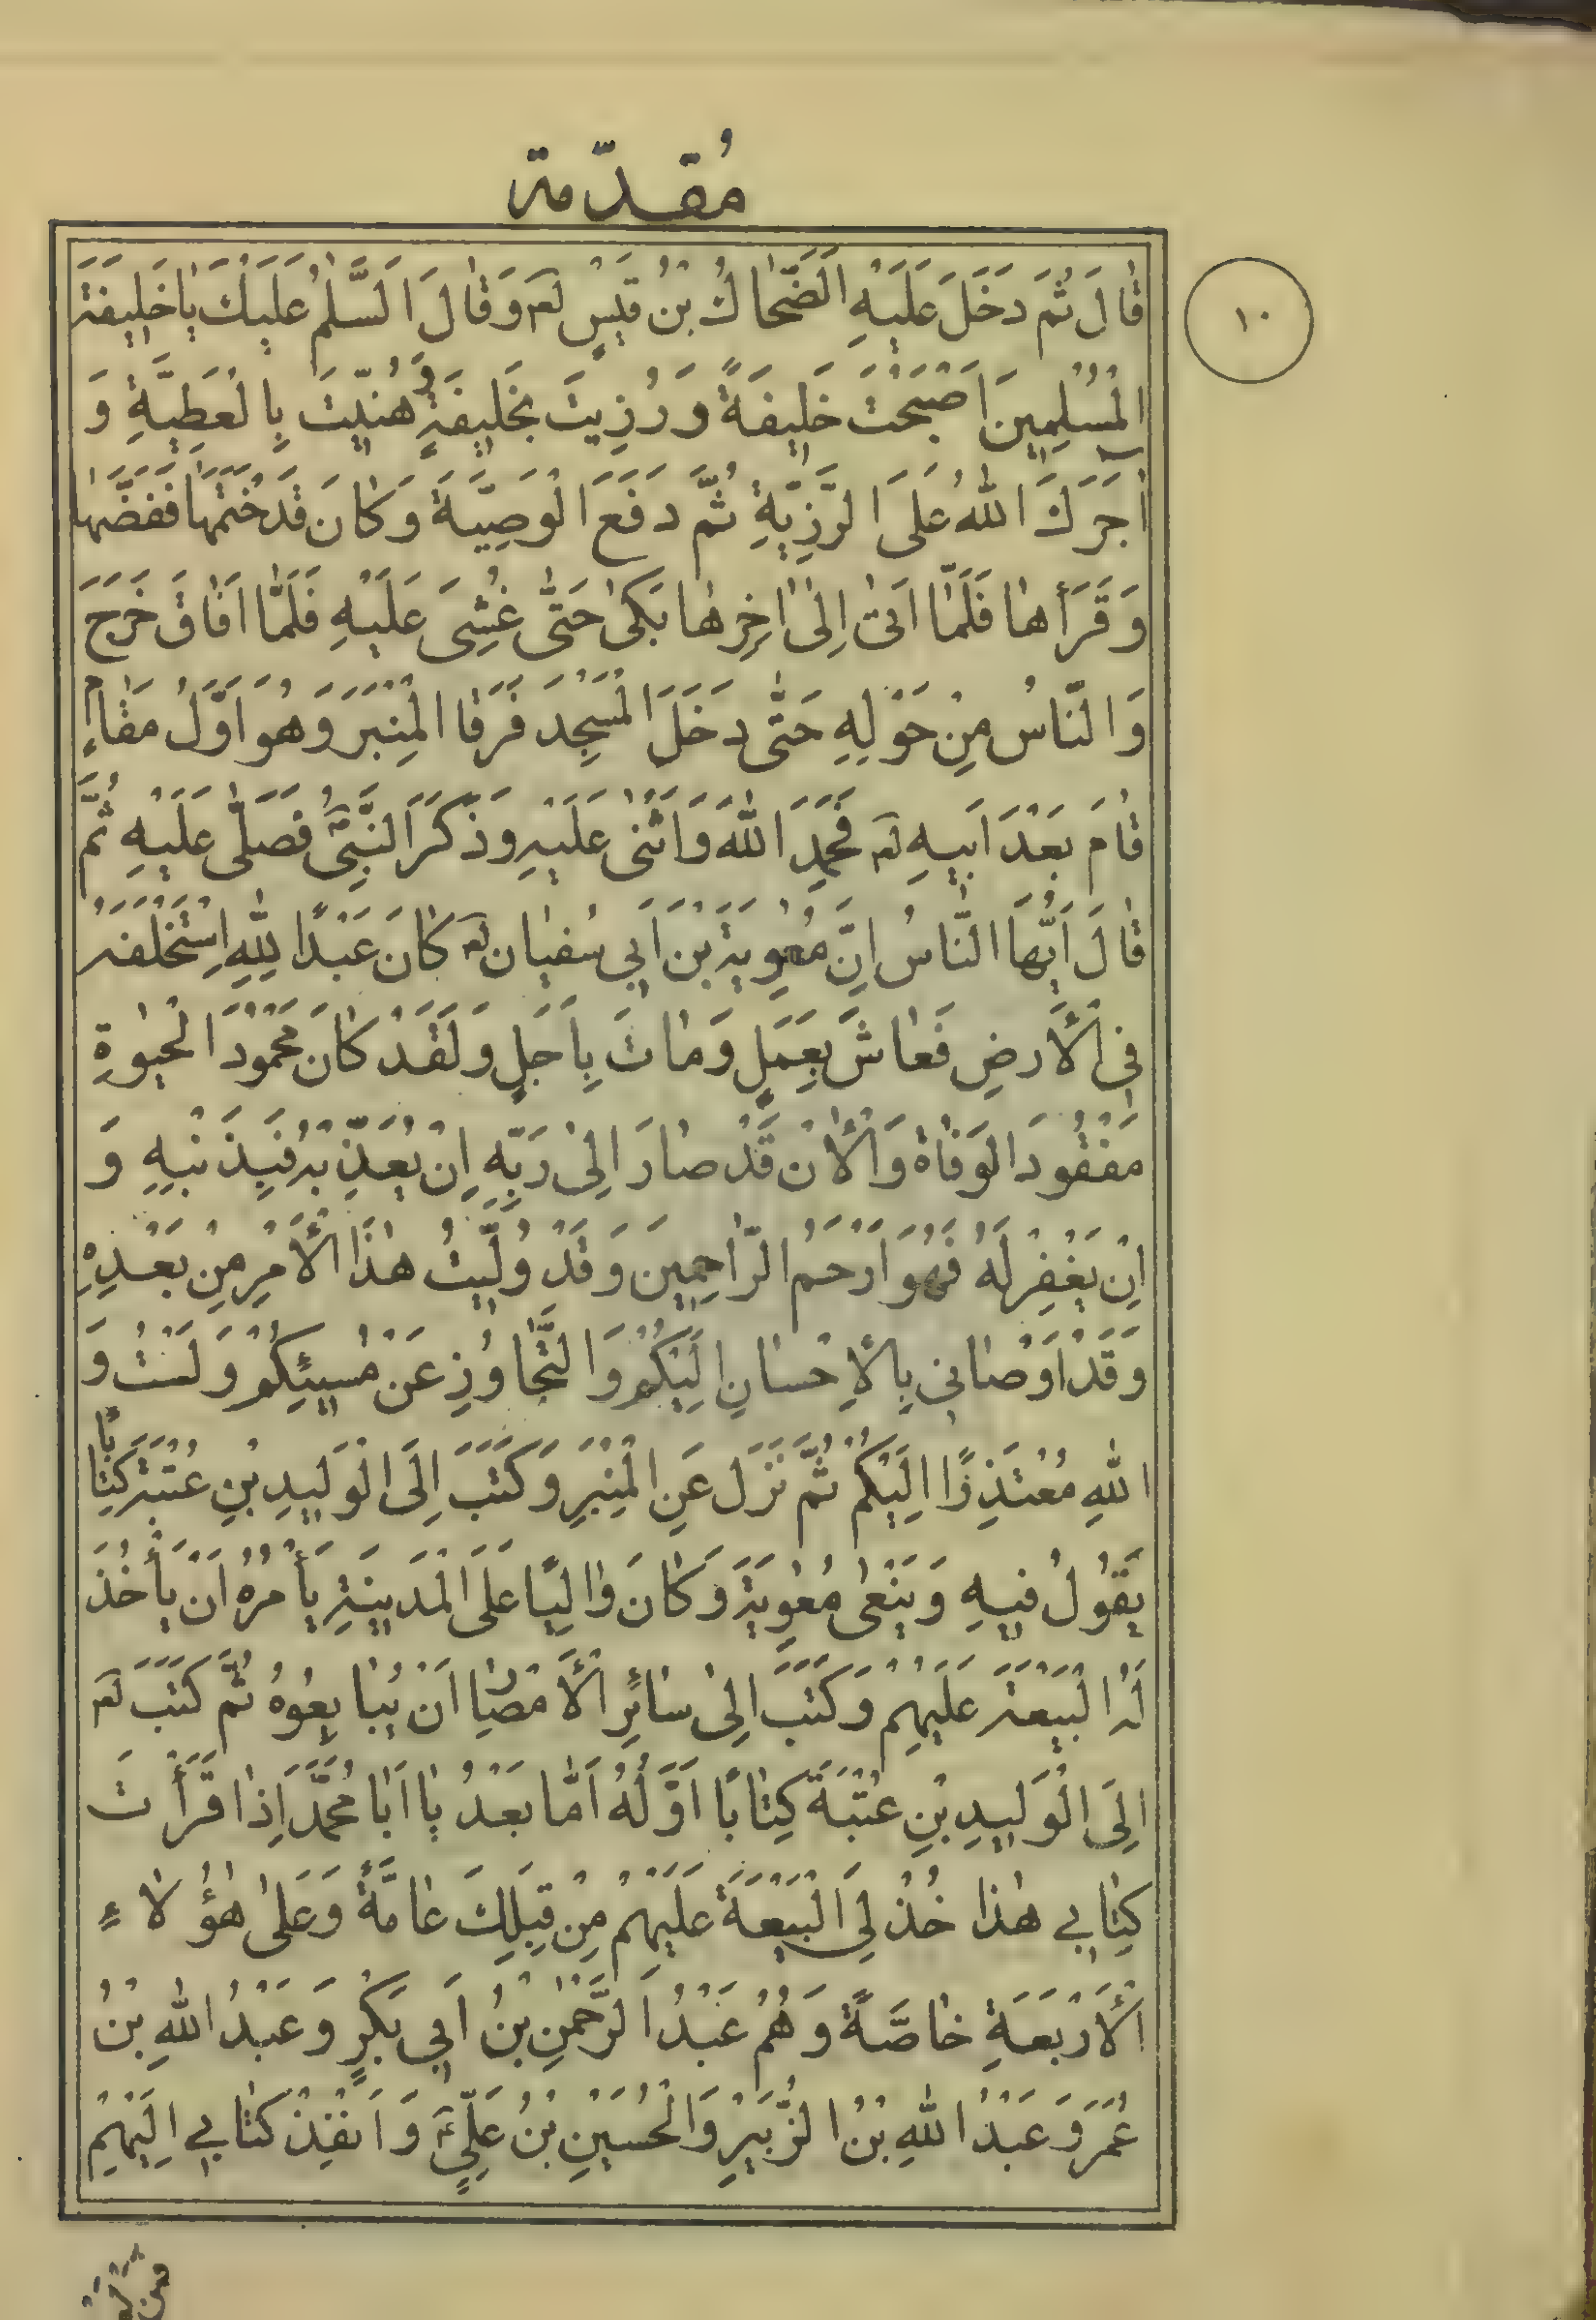 مُقدّمة
١٠
قٰالَ ثُمَّ دَخَلَ عَلَيْهِ الضَّحّٰاكُ بْنُ قَيْسٍ لعۤ وَقٰالَ اَلسَّلٰمُ عَلَيْكَ يٰا خَلِيفَةَ
الْمُسْلِمِينَ اَصْبَحْتَ خَلِيفَةً وَ رُزِيتَ بِخَلِيفَةٍ وَ هُنّيتَ بِالْعَطِيَّةِ وَ
اٰجَرَكَ اللّٰهُ عَلَى الرَّزِيَّةِ ثُمَّ دَفَعَ الْوَصِيَّةَ وَ كٰانَ قَدْ خَتَمَهٰا فَفَضَّهٰا
وَ قَرَأَهٰا فَلَمّٰا اَتىٰ اِلىٰ اٰخِرِهٰا بَكىٰ حَتّٰى غُشِىَ عَلَيْهِ فَلَمّٰا اَفٰاقَ خَرَجَ
وَ النّٰاسُ مِنْ حَوْلِهِ حَتّٰى دَخَلَ الْمَسْجِدَ فَرَقٰا الْمِنْبَرَ وَ هُوَ اَوَّلُ مَقٰامٍ
قٰامَ بَعْدَ اَبِيهِ لعۤ فَحَمِدَ اللّٰهَ وَ اَثْنىٰ عَلَيْهِ وَ ذَكَرَ النَّبِيَّ فَصَلّٰى عَلَيْهِ ثُمَّ
قٰالَ اَيُّهَا النّٰاسُ اِنَّ مُعٰوِيَةَ بْنَ اَبِي سُفْيٰان لعۤ كٰانَ عَبْدًا لِلّٰهِ اِسْتَخْلَفَهُ
فِى الْأَرْضِ فَعٰاشَ بِعَمَلٍ وَ مٰاتَ بِاَجَلٍ وَ لَقَدْ كٰانَ مَحْمُودَ الْحَيٰوةِ
مَفْقُودَ الْوَفٰاةِ وَ الْأٰنَ قَدْ صٰارَ اِلىٰ رَبِّهِ اِنْ يُعَذِّبْهُ فَبِذَنْبِهِ وَ
اِنْ يَغْفِرْ لَهُ فَهُوَ اَرْحَمُ الرّٰاحِمِينَ وَ قَدْ وُلِّيتُ هٰذَا الْأَمْرَ مِنْ بَعْدِهِ
وَ قَدْ اَوْصٰانِى بِالْاِحْسٰانِ اِلَيْكُمْ وَ التَّجٰاوُزِ عَنْ مُسِيئِكُمْ وَ لَسْتُ وَ
اللّٰهِ مُعْتَذِرًا اِلَيْكُمْ ثُمَّ نَزَلَ عَنِ الْمِنْبَرِ وَ كَتَبَ اِلَى الْوَلِيدِ بْنِ عُتْبَةَ كِتٰابًا
يَقُولُ فِيهِ وَ يَنْعىٰ مُعٰوِيَةَ وَ كٰانَ وٰالِيًا عَلَى الْمَدِينَةِ يَأْمُرُهُ اَنْ يَأْخُذَ
لَهُ الْبَيْعَةَ عَلَيْهِمْ وَ كَتَبَ اِلىٰ سٰائِرِ الْأَمْصٰارِ اَنْ يُبٰايِعُوهُ ثُمَّ كَتَبَ لعۤ
اِلَى الْوَلِيدِ بْنِ عُتْبَةَ كِتٰابًا اَوَّلُهُ اَمّٰا بَعْدُ يٰا اَبٰا مُحَمَّدٍ اِذٰا قَرَأْتَ
كِتٰابِي هٰذٰا خُذْ لِىَ الْبَيْعَةَ عَلَيْهِمْ مِنْ قِبَلِكَ عٰامَّةً وَ عَلىٰ هٰؤُلٰاءِ
الْأَرْبَعَةِ خٰاصَّةً وَ هُمْ عَبْدُ الرَّحْمٰنِ بْنُ اَبِي بَكْرٍ وَ عَبْدُ اللّٰهِ بْنُ
عُمَرَ وَ عَبْدُ اللّٰهِ بْنُ الزُّبَيْرِ وَ الْحُسَيْنِ بْنُ عَلِيٍّ عۤ وَ اَنْفِذْ كِتٰابِي اِلَيْهِمْ